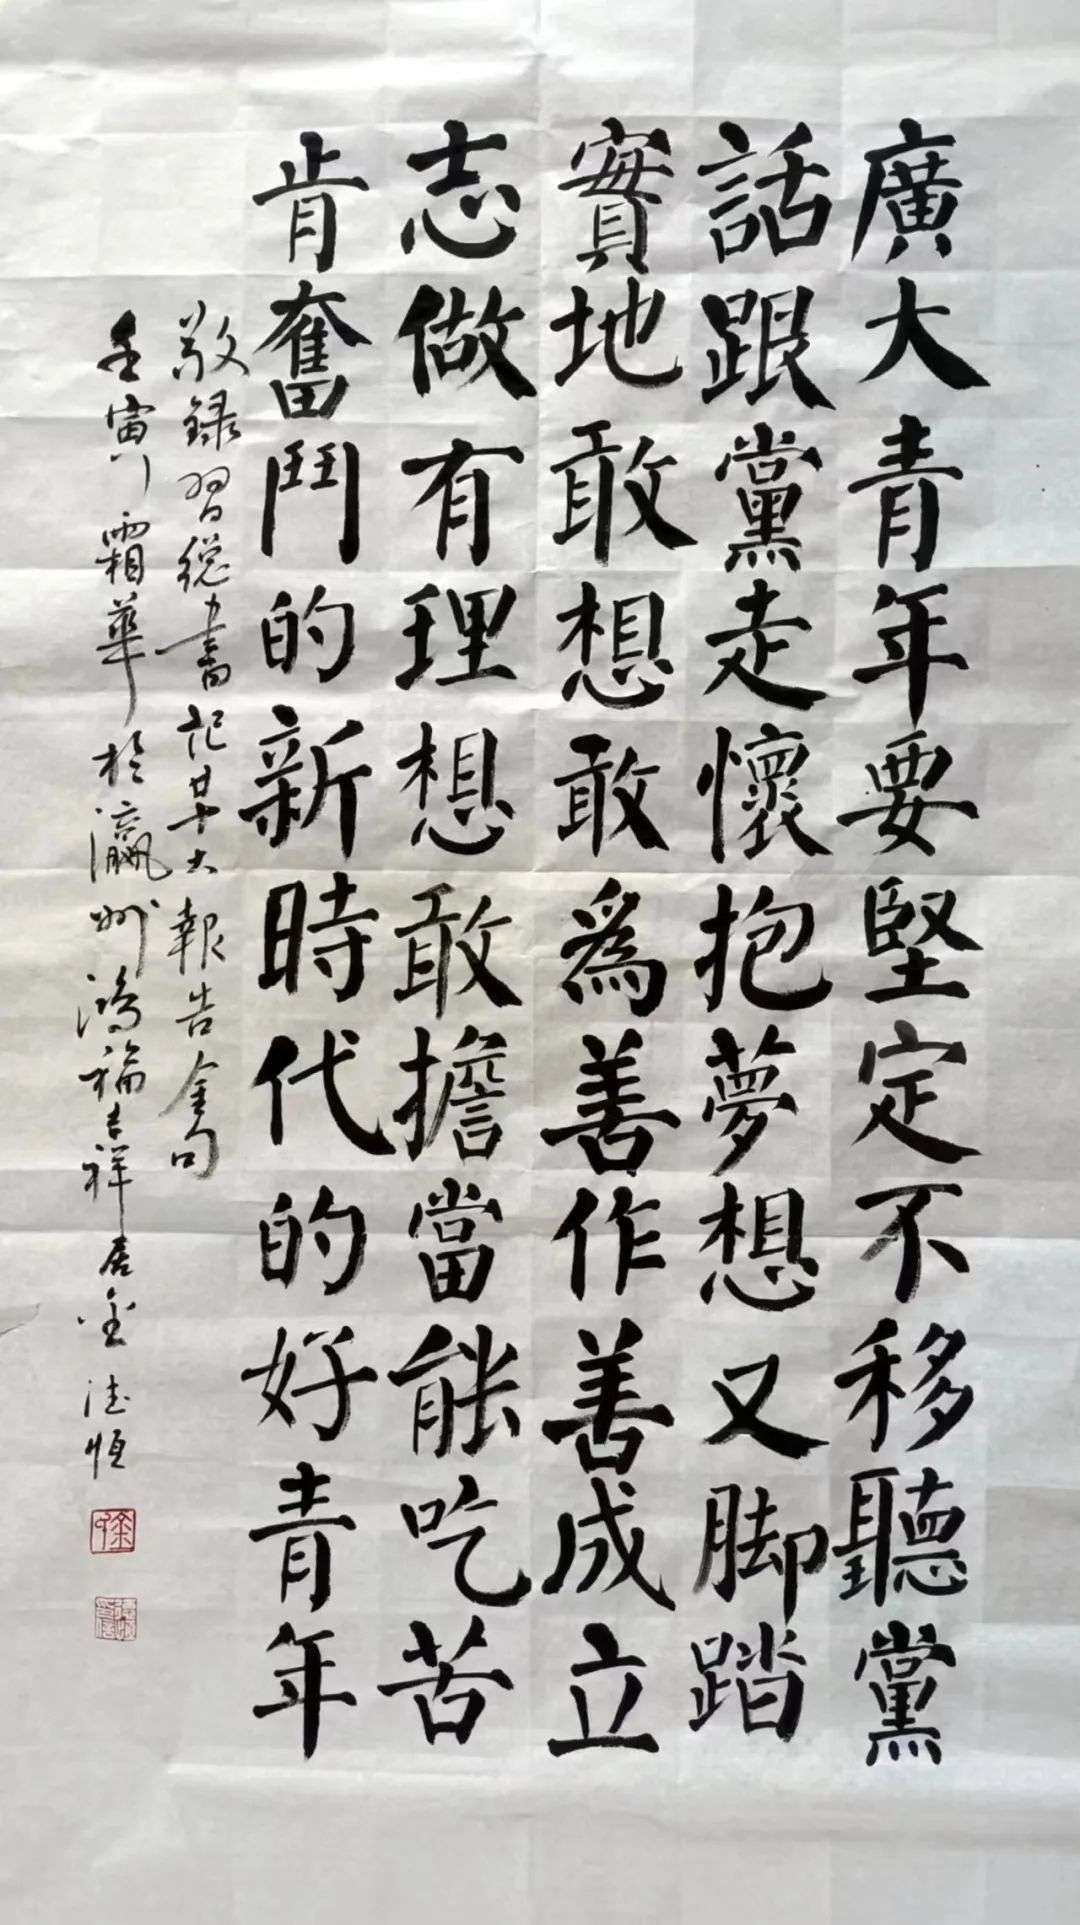 廣大青年要堅定不移聽黨
話跟黨走懷抱夢想又脚踏
實地敢想敢為善作善成立
志做有理想敢擔當能吃苦
肯奮鬥的新時代的好青年
敬録習總書記廿大報告金句
壬寅霜華於瀛州鴻福吉祥居金德恒